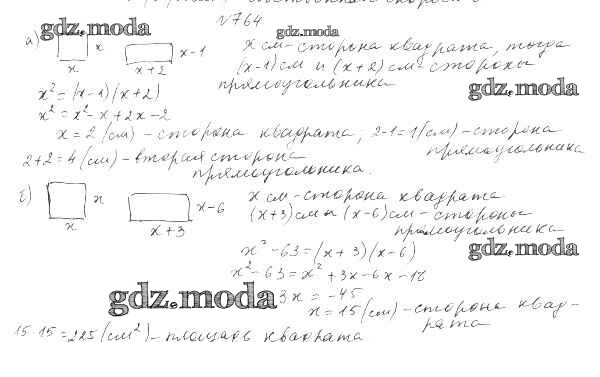 N764
gdz.moda
gdz.moda
а) x x x-1 x+2
x см - сторона квадрата, тогда
(x-1) см и (x+2) см - стороны
прямоугольника
gdz.moda
x² = (x-1)(x+2)
x² = x² - x + 2x - 2
x = 2 (см) - сторона квадрата, 2-1=1 (см) - сторона
прямоугольника
2+2=4 (см) - вторая сторона
прямоугольника.
б) x x x-6 x+3
x см - сторона квадрата
(x+3) см и (x-6) см - стороны
прямоугольника
x² - 63 = (x+3)(x-6)
gdz.moda
x² - 63 = x² + 3x - 6x - 18
gdz.moda
3x = -45
x = 15 (см) - сторона квад-
рата
15·15=225 (см²) - площадь квадрата